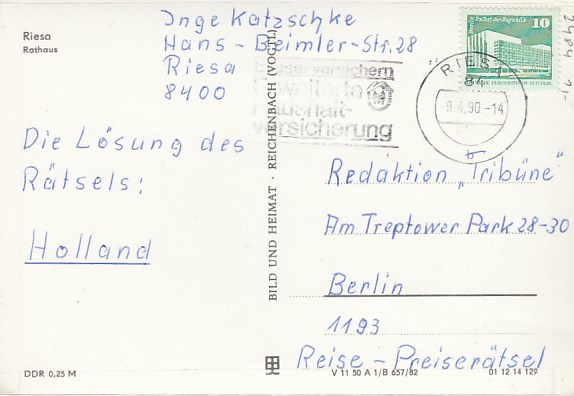 Riesa
Rathaus
Inge Katzschke
Hans-Beimler-Str. 28
Riesa
8400
Die Lösung des
Rätsels:
Holland
DDR 0,25 M
BILD UND HEIMAT · REICHENBACH (VOGTL)
versichern
Haushalt-
versicherung
RIESA
84
-9.4.90-14
b
Berlin Palast der Republik
10
Redaktion „Tribüne"
Am Treptower Park 28-30
Berlin
1193
Reise-Preiserätsel
V 11 50 A 1/B 657/82
01 12 14 129